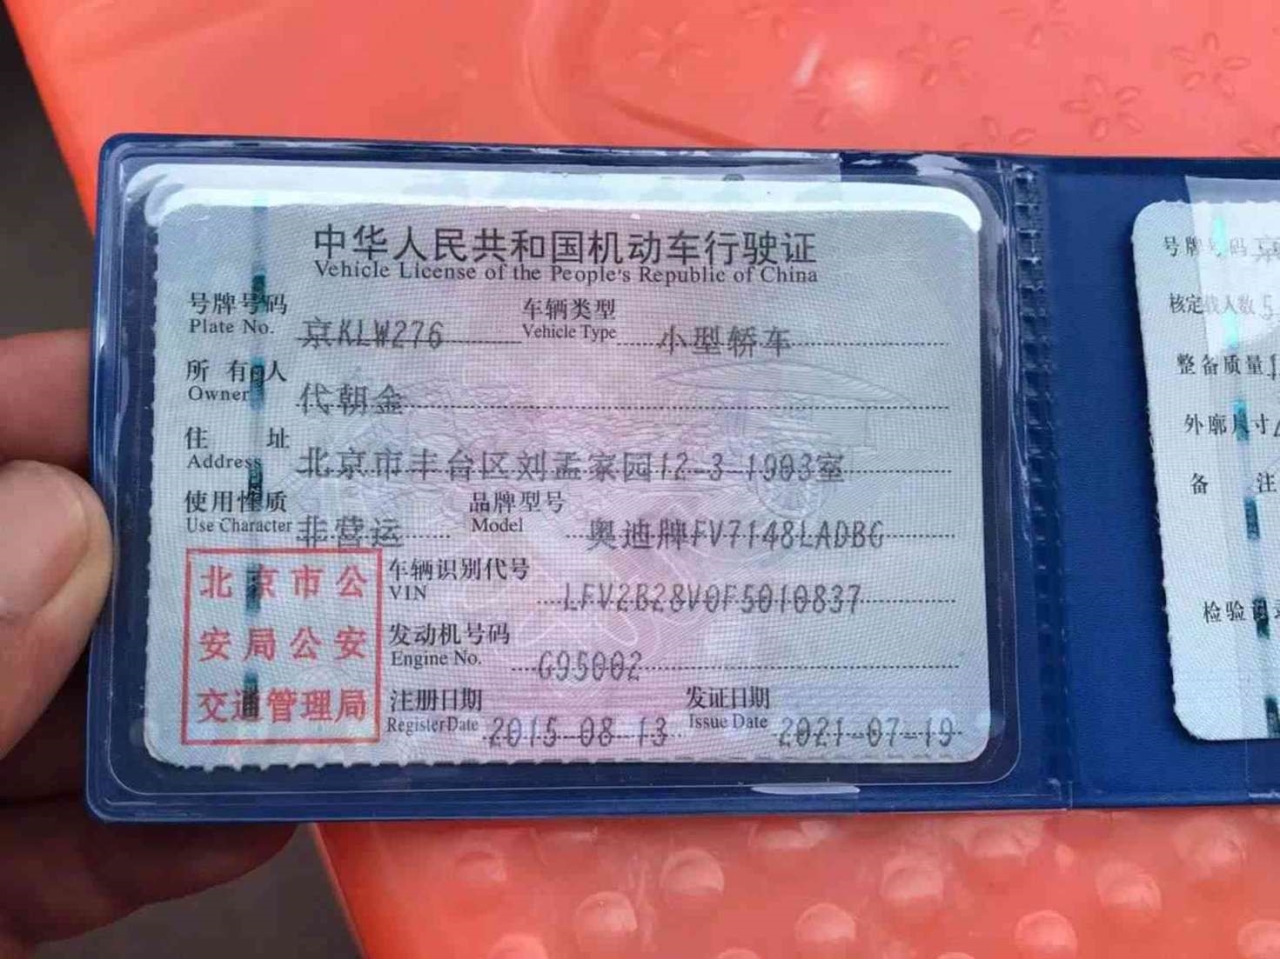 中华人民共和国机动车行驶证
Vehicle License of the People's Republic of China
号牌号码 京KLW276 车辆类型 小型轿车
Plate No. Vehicle Type
所有人 代朝金
Owner
住址 北京市丰台区刘孟家园12-3-1903室
Address
使用性质 非营运 品牌型号 奥迪牌FV7148LADBG
Use Character Model
车辆识别代号 LFV2B28V0F5010837
VIN
发动机号码 G95002
Engine No.
注册日期 2015-08-13 发证日期 2021-07-19
Register Date Issue Date
北京市公
安局公安
交通管理局
号牌号码 京
核定载人数 5
整备质量
外廓尺寸
备注
检验记